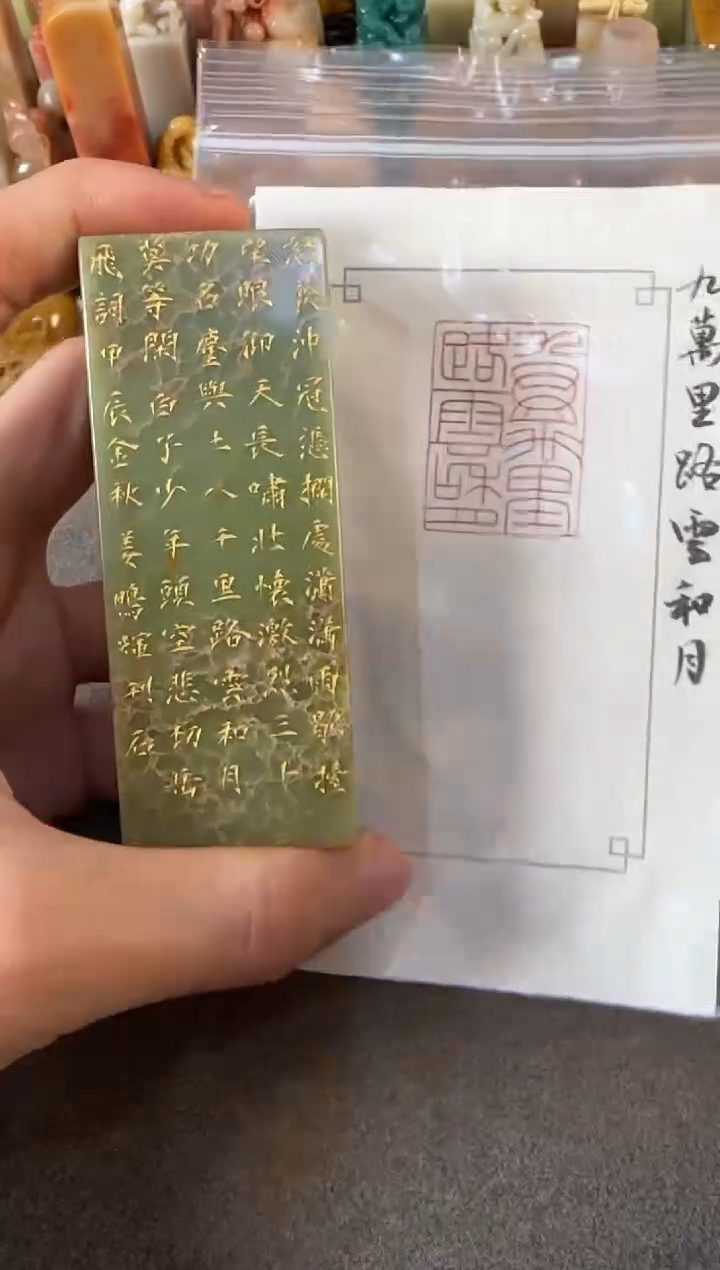 怒髮沖冠憑欄處瀟瀟雨歇擡
望眼仰天長嘯壯懷激烈三十
功名塵與土八千里路雲和月
莫等閑白了少年頭空悲切岳
飛詞甲辰金秋姜輝刻石
九萬里
路雲和月
九萬里路雲和月